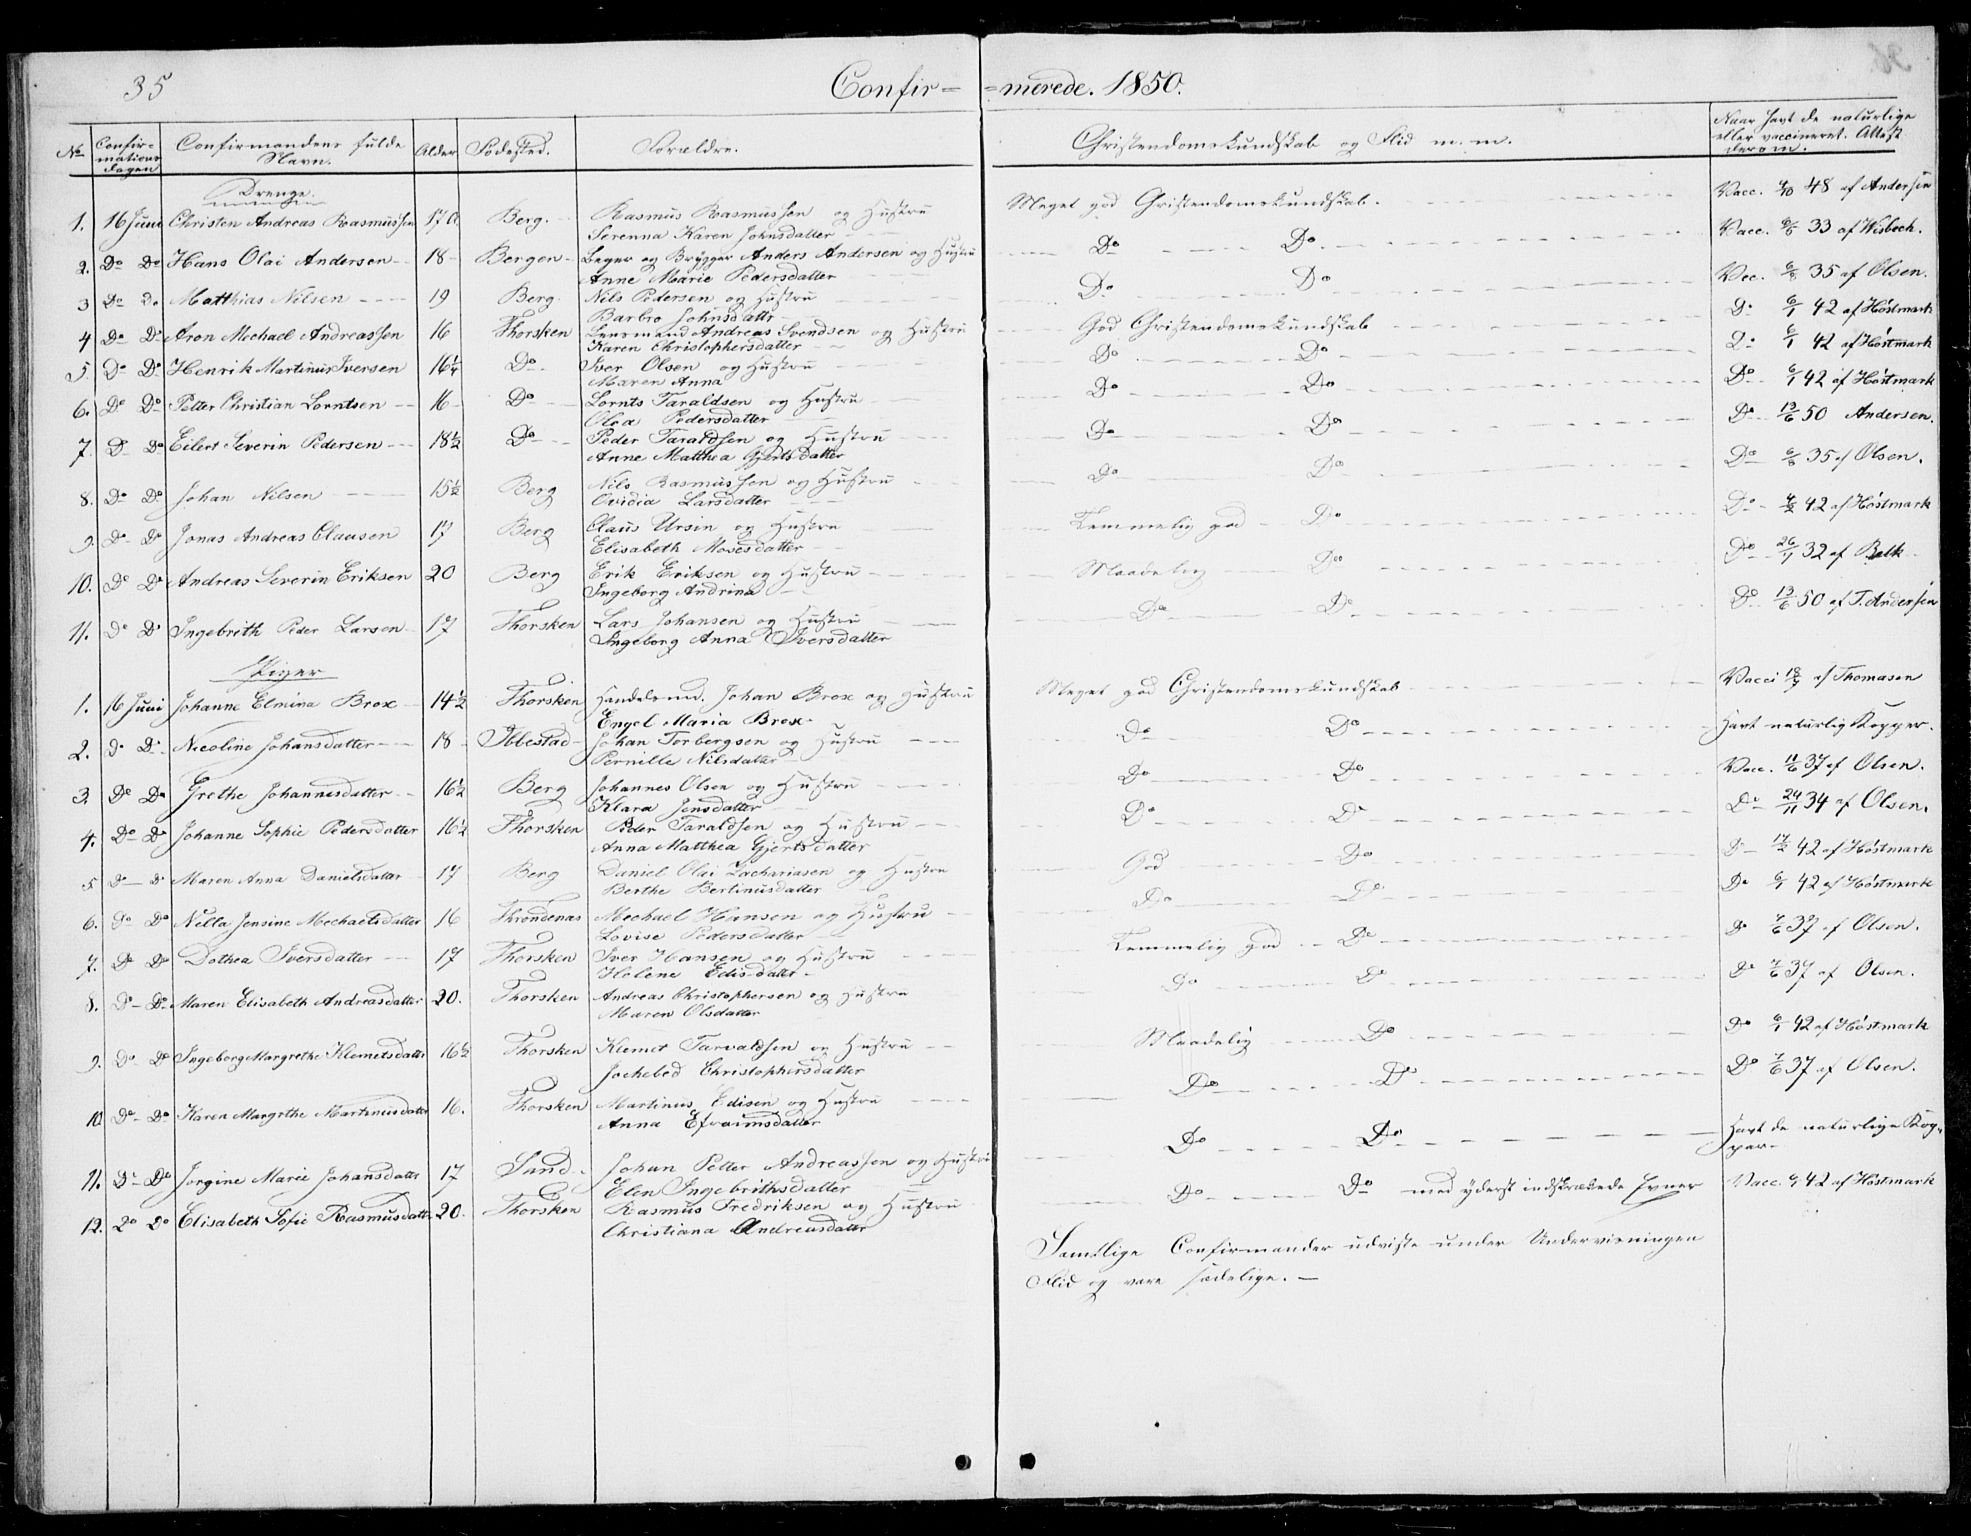 35 Confir= =merede. 1850.
No Confir=mations dagen Confirmandens fulde Navn. Alder Fødested. Forældre. Christendomskundskab og Flid m. m. Naar havt de naturlige eller vaccineret. Attest derom.
Drenge.
1. 16 Juni Christen Andreas Rasmussen 17 Berg. Rasmus Rasmussen og Hustru Meget god Christendomskundskab. Vacc. 48 af Andersen
Serenna Karen Johnsdatter
2. Do Do Hans Olai Andersen 18 Bergen Bager og Brygger Anders Andersen og Hustru Do Do Vacc. 33 af Wisbech.
Anne Marie Pedersdatter
3 Do Do Matthias Nilsen 19 Berg. Nils Pedersen og Hustru Do Do Vacc. 6/8 35 af Olsen.
Barbro Johnsdattr
4 Do Do Aron Mechael Andreassen 16 Thorsken Lensmand Andreas Svendsen og Hustru God Christendomskundskab Do 6/1 42 af Høstmark
Karen Christophersdatter
5. Do Do Henrik Martinus Iversen 16¼ Do Iver Olsen og Hustru Do Do Do 6/1 42 af Høstmark
Maren Anna
6. Do Do Petter Christian Lorntsen 16 Do Lornts Taraldsen og Hustru Do Do Do 6/1 42 af Høstmark
Olea Pedersdatter
7. Do Do Eilert Severin Pedersen 18½ Do Peder Taraldsen og Hustru Do Do Do 13/6 50 Andersen.
Anne Matthea Gjertsdatter
8. Do Do Johan Nilsen 15½ Berg Nils Rasmussen og Hustru Do Do Do 6/8 35 af Olsen.
Ovidia Larsdatter
9. Do Do Jonas Andreas Clausen 17 Berg Claus Ursin og Hustru Temmelig god Do Do 42 af Høstmark
Elisabeth Mosesdatter
10. Do Do Andreas Severin Eriksen 20 Berg Erik Eriksen og Hustru Maadelig Do Do 26/ 32 af Balk
Ingeborg Andrina
11. Do Do Ingebrith Peder Larsen 17 Thorsken Lars Johansen og Hustru Do Do Do 13/6 50 af T. Andersen
Ingeborg Anna Iversdatter
Piger
1. 16 Juni Johanne Elmina Brox 14½ Thorsken Handelsmd. Johan Brox og Hustru Meget god Christendomskundskab Vacci af Thomasen
Engel Maria Brox
2. Do Do Nicoline Johansdatter 18 Ibbestad Johan Torbergsen og Hustru Do Do Havt naturlig Kopper.
Pernille Nilsdatter
3. Do Do Grethe Johannesdatter 16½ Berg Johannes Olsen og Hustru Do Do Vacc. 11/6 37 af Olsen.
Klara Jensdatter
4. Do Do Johanne Sophie Pedersdatter 16½ Thorsken Peder Taraldsen og Hustru Do Do Do 24/11 34 af Olsen.
Anna Matthea Gjertsdatter
5 Do Do Maren Anna Danielsdatter 17 Berg Daniel Olai Zachariasen og Hustru God Do Do 17/2 42 af Høstmark
Berthe Bertinusdatter
6. Do Do Nella Jensine Mechaelsdatter 16 Throndenas Mechael Hansen og Hustru Do Do Do 6/1 42 af Høstmark
Lovise Pedersdatter
7. Do Do Dothea Iversdatter 17 Thorsken Iver Hansen og Hustru Temmelig god Do Do 7/6 37 af Olsen.
Helene Edisdattr
8. Do Do Maren Elisabeth Andreasdatter 20. Thorsken Andreas Christophersen og Hustru Do Do Do 7/6 37 af Olsen.
Maren Olsdatter
9. Do Do Ingeborg Margrethe Klemetsdattr 16½ Thorsken Klemet Tarvaldsen og Hustru Maadelig Do Do 6/1 42 af Høstmark
Jochebed Christophersdatter
10 Do Do Karen Margrthe Martinusdattr 16. Thorsken Martinus Edisen og Hustru Do Do Do 7/6 37 af Olsen.
Anna Efraimsdatter
11. Do Do Jorgine Marie Johansdattr 17 Sand Johan Petter Andreassen og Hustru Do Do Havt de naturlige Kopper
Elen Ingebrithsdatter
12. Do Do Elisabeth Sofie Rasmusdattr 20. Thorsken Rasmus Fredriksen og Hustru Do Do med yderst indskrænkede Evner Vacc. 42 af Høstmark
Christiana Andreasdattr
Samtlige Confirmander udviste under Undervisningen
Flid og vare sædelige.